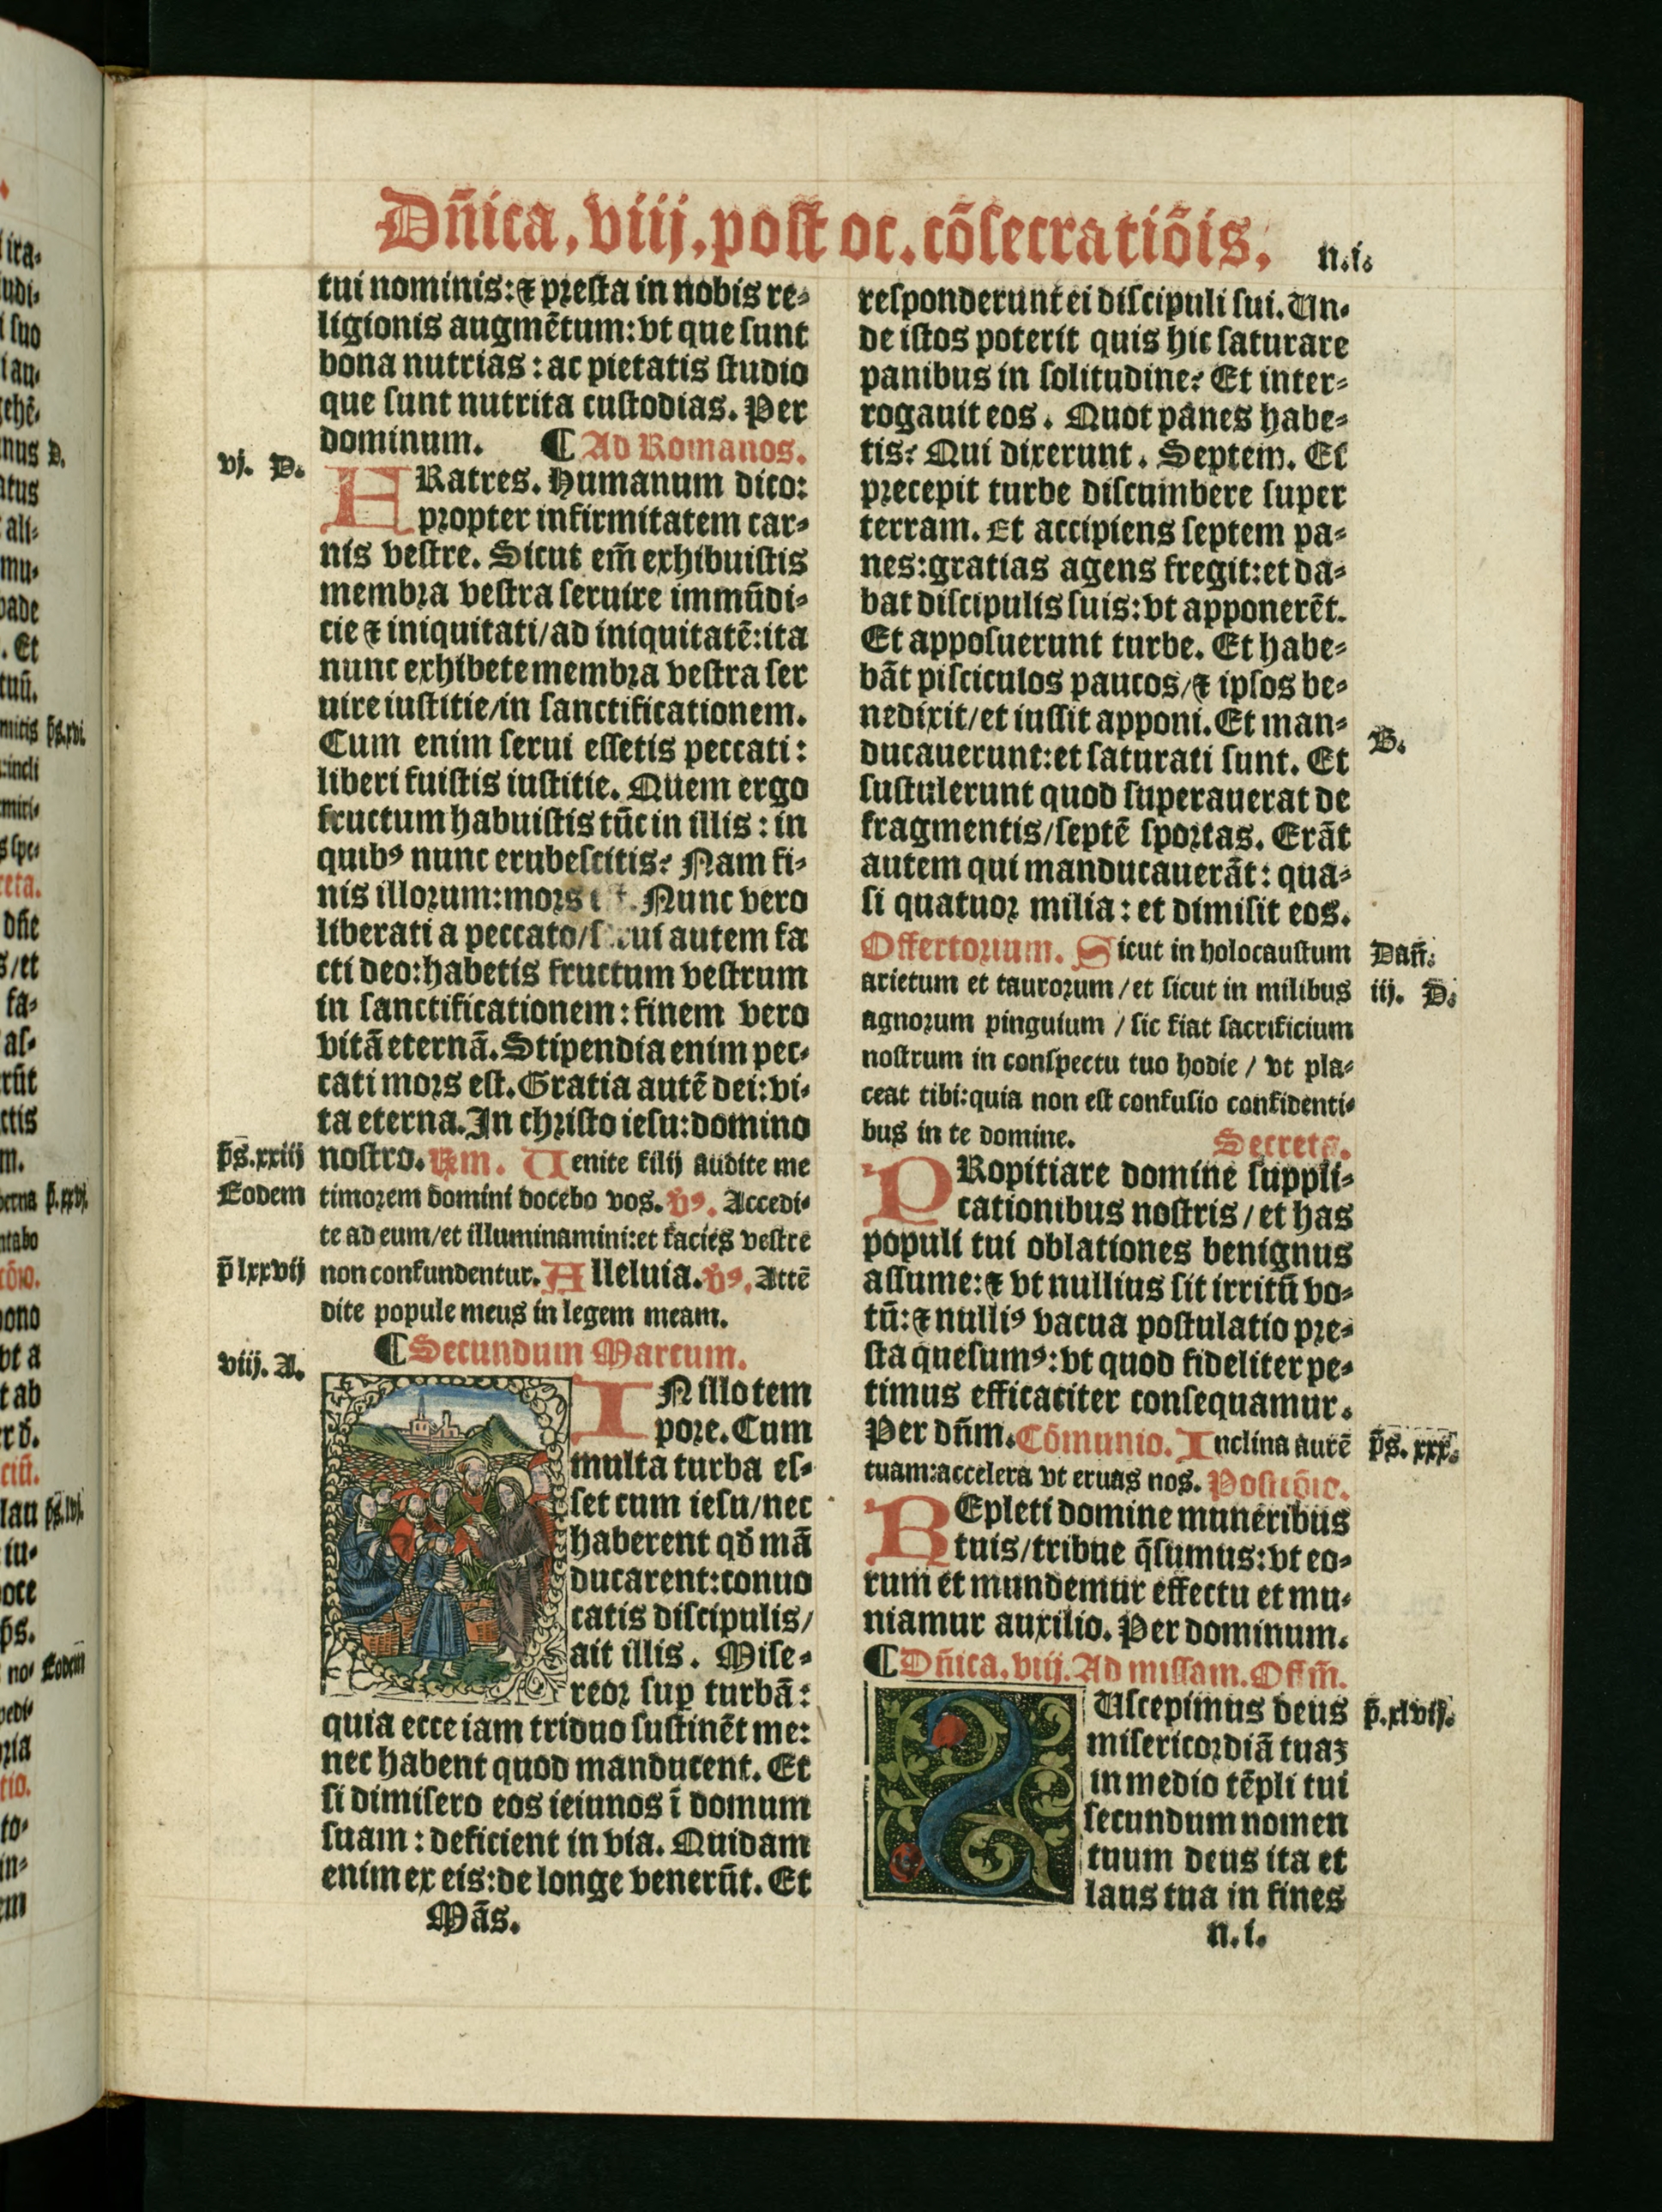 Dn̄ica. viij. post oc. cōsecratiōis.
n.i.
tui nominis: ⁊ presta in nobis re-
ligionis augmētum: vt que sunt
bona nutrias: ac pietatis studio
que sunt nutrita custodias. Per
dominum. ¶ Ad Romanos.
vj. D.
FRatres. Humanum dico:
propter infirmitatem car-
nis vestre. Sicut em̄ exhibuistis
membra vestra seruire immūdi-
cie ⁊ iniquitati/ad iniquitatē: ita
nunc exhibete membra vestra ser
uire iustitie/in sanctificationem.
Cum enim serui essetis peccati:
liberi fuistis iustitie. Quem ergo
fructum habuistis tūc in illis: in
quibꝰ nunc erubescitis? Nam fi-
nis illorum: mors Nunc vero
liberati a peccato/ autem fa
cti deo: habetis fructum vestrum
in sanctificationem: finem vero
vitā eternā. Stipendia enim pec-
cati mors est. Gratia autē dei: vi-
ta eterna. In christo iesu: domino
p̄s. xxiij
nostro. Rm. Uenite filij audite me
Eodem
timorem domini docebo vos. v̄ꝰ. Accedi-
te ad eum/et illuminamini: et facies vestre
p̄ lxxvij
non confundentur. Alleluia. v̄ꝰ. Attē
dite popule meus in legem meam.
¶ Secundum Marcum.
viij. A.
IN illo tem
pore. Cum
multa turba es-
set cum iesu/nec
haberent qd̄ mā
ducarent: conuo
catis discipulis/
ait illis. Mise-
reor sup turbā:
quia ecce iam triduo sustinēt me:
nec habent quod manducent. Et
si dimisero eos ieiunos ī domum
suam: deficient in via. Quidam
enim ex eis: de longe venerūt. Et
Mās.
responderunt ei discipuli sui. Un-
de istos poterit quis hic saturare
panibus in solitudine? Et inter-
rogauit eos. Quot panes habe-
tis? Qui dixerunt. Septem. Et
precepit turbe discumbere super
terram. Et accipiens septem pa-
nes: gratias agens fregit: et da-
bat discipulis suis: vt apponerēt.
Et apposuerunt turbe. Et habe-
bāt pisciculos paucos/⁊ ipsos be-
nedixit/et iussit apponi. Et man-
B.
ducauerunt: et saturati sunt. Et
sustulerunt quod superauerat de
fragmentis/septē sportas. Erāt
autem qui manducauerāt: qua-
si quatuor milia: et dimisit eos.
Offertorium. Sicut in holocaustum
Dan̄.
arietum et taurorum/et sicut in milibus
iij. D.
agnorum pinguium / sic fiat sacrificium
nostrum in conspectu tuo hodie / vt pla-
ceat tibi: quia non est confusio confidenti-
bus in te domine. Secreta.
PRopitiare domine suppli-
cationibus nostris/et has
populi tui oblationes benignus
assume: ⁊ vt nullius sit irritū vo-
tū: ⁊ nulliꝰ vacua postulatio pre-
sta quesumꝰ: vt quod fideliter pe-
timus efficaciter consequamur.
Per dn̄m. Cōmunio. Inclina aurē
p̄s. xxx.
tuam: accelera vt eruas nos. Postcōio.
REpleti domine muneribus
tuis/tribue q̄sumus: vt eo-
rum et mundemur effectu et mu-
niamur auxilio. Per dominum.
¶ Dn̄ica. viij. Ad missam. Offm̄.
SUscepimus deus
p̄. xlvij.
misericordiā tuaꝫ
in medio tēpli tui
secundum nomen
tuum deus ita et
laus tua in fines
n.i.